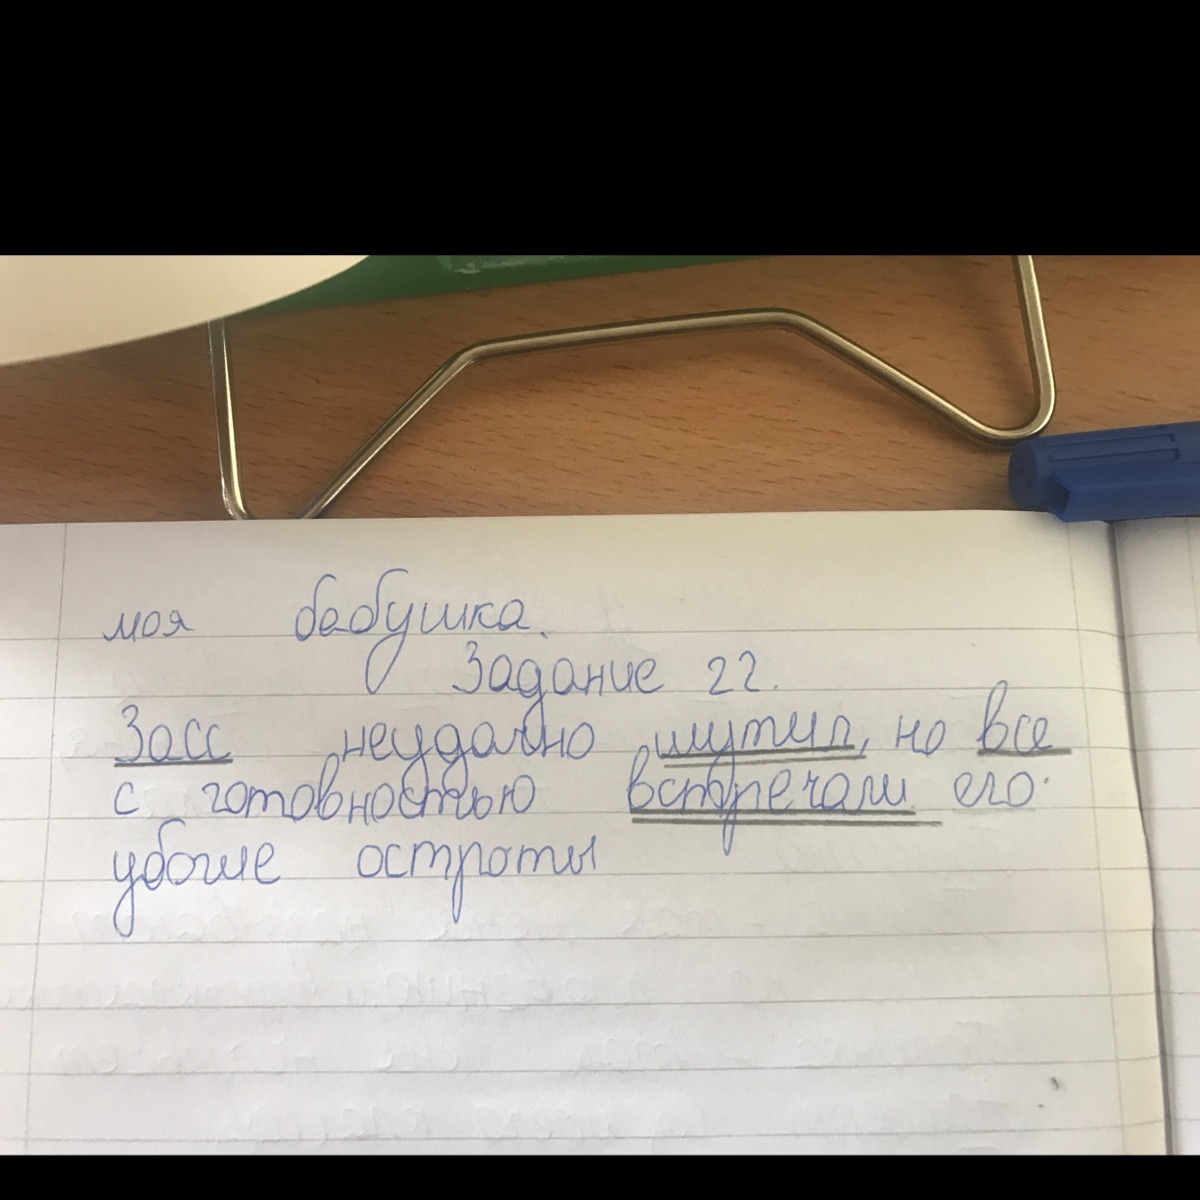 моя бабушка.
Задание 22.
Засс неудачно шутил, но все
с готовностью встречали его
убогие остроты